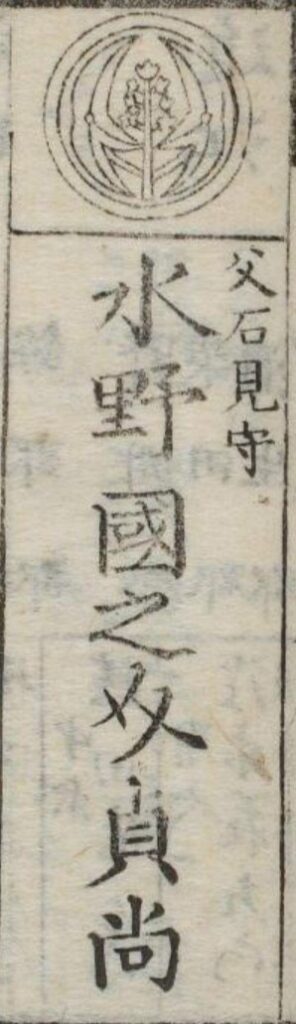 父石見守
水野國之貞尚